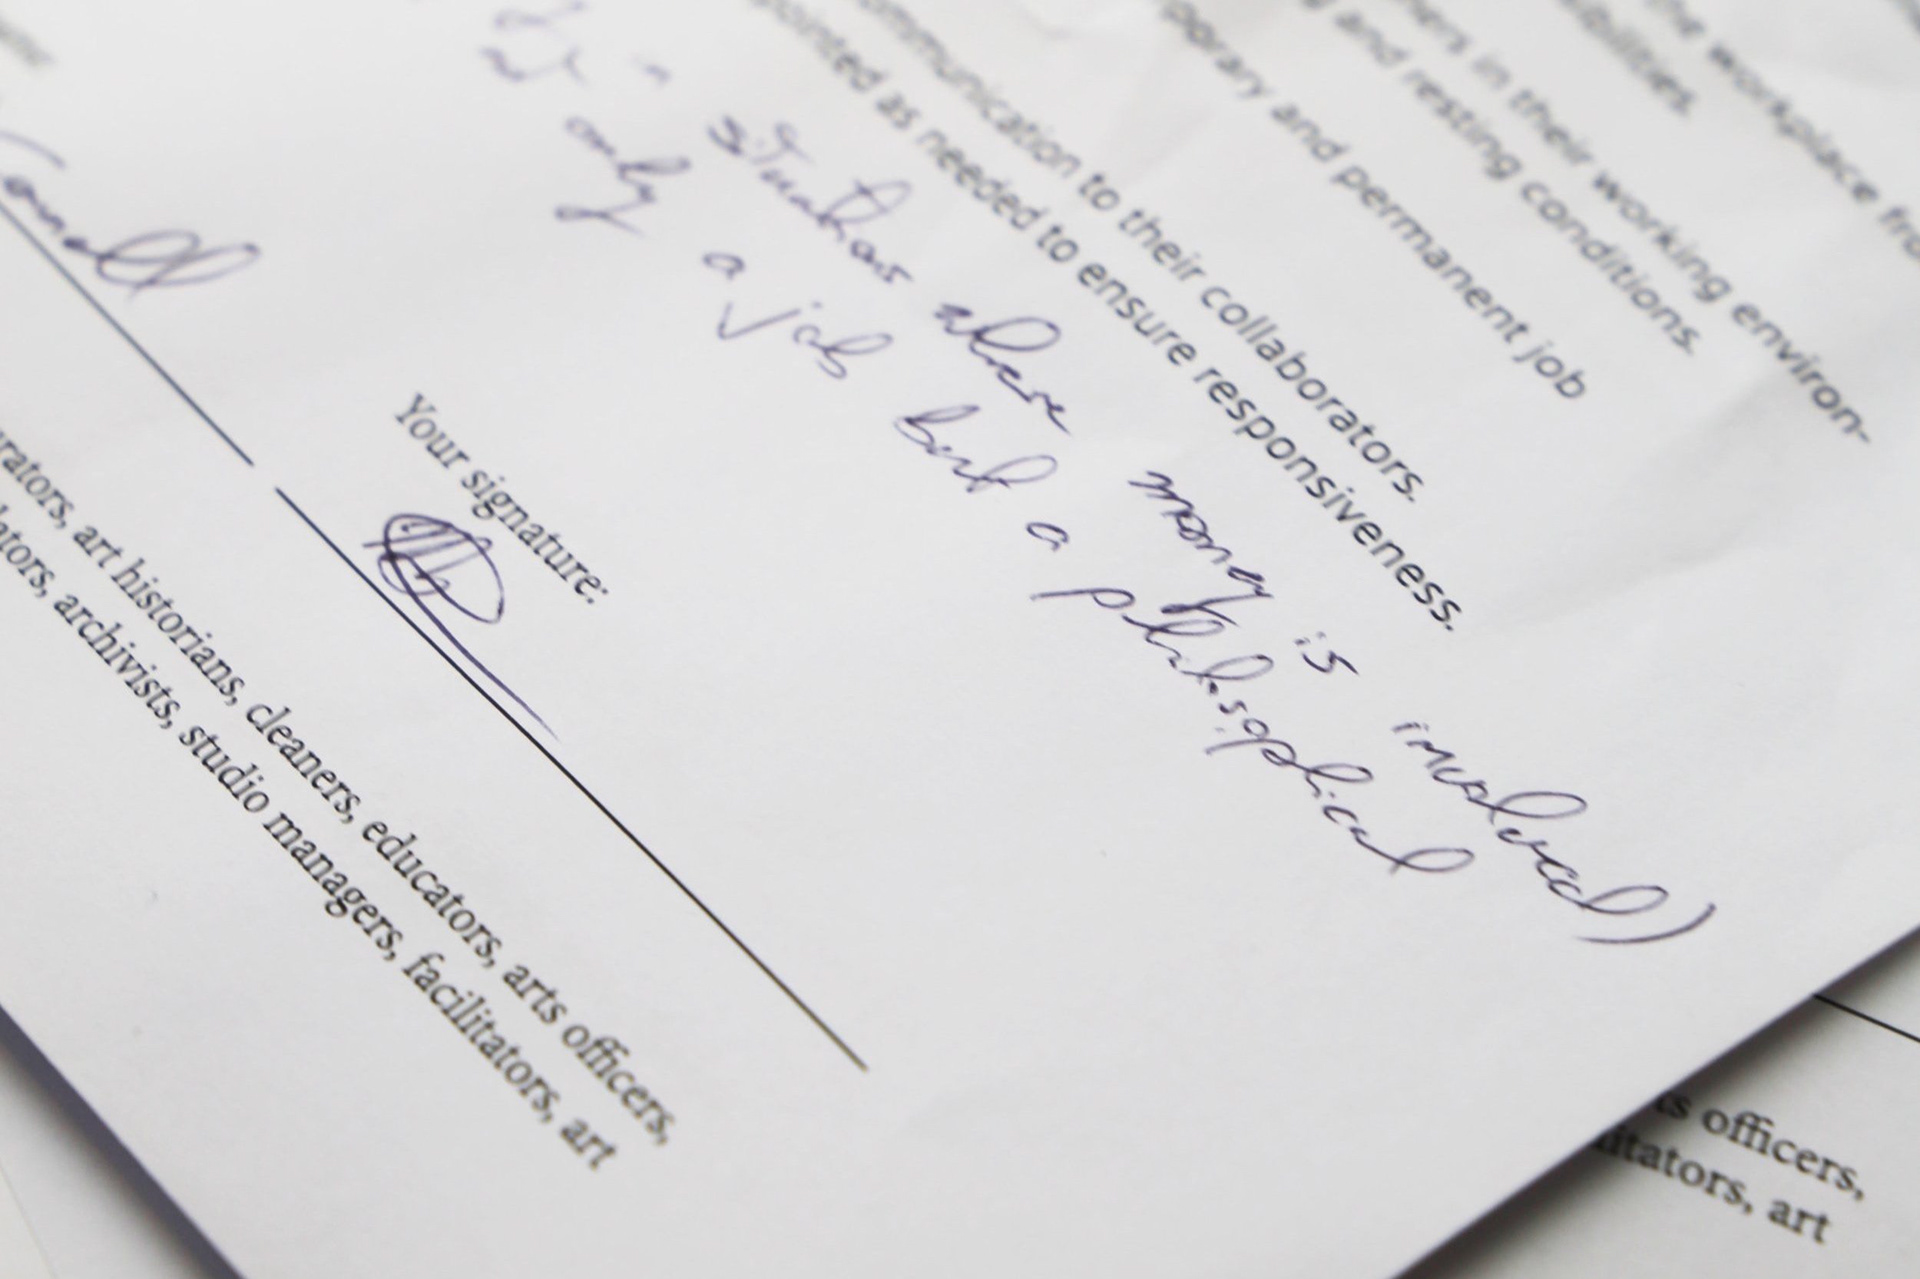 the workplace fro
bilities.
hers in their working environ-
and resting conditions.
porary and permanent job
ommunication to their collaborators.
ointed as needed to ensure responsiveness.
in situations where money is involved)
not only a job but a philosophical
Your signature:
urators, art historians, cleaners, educators, arts officers,
lators, archivists, studio managers, facilitators, art
ts officers,
litators, art